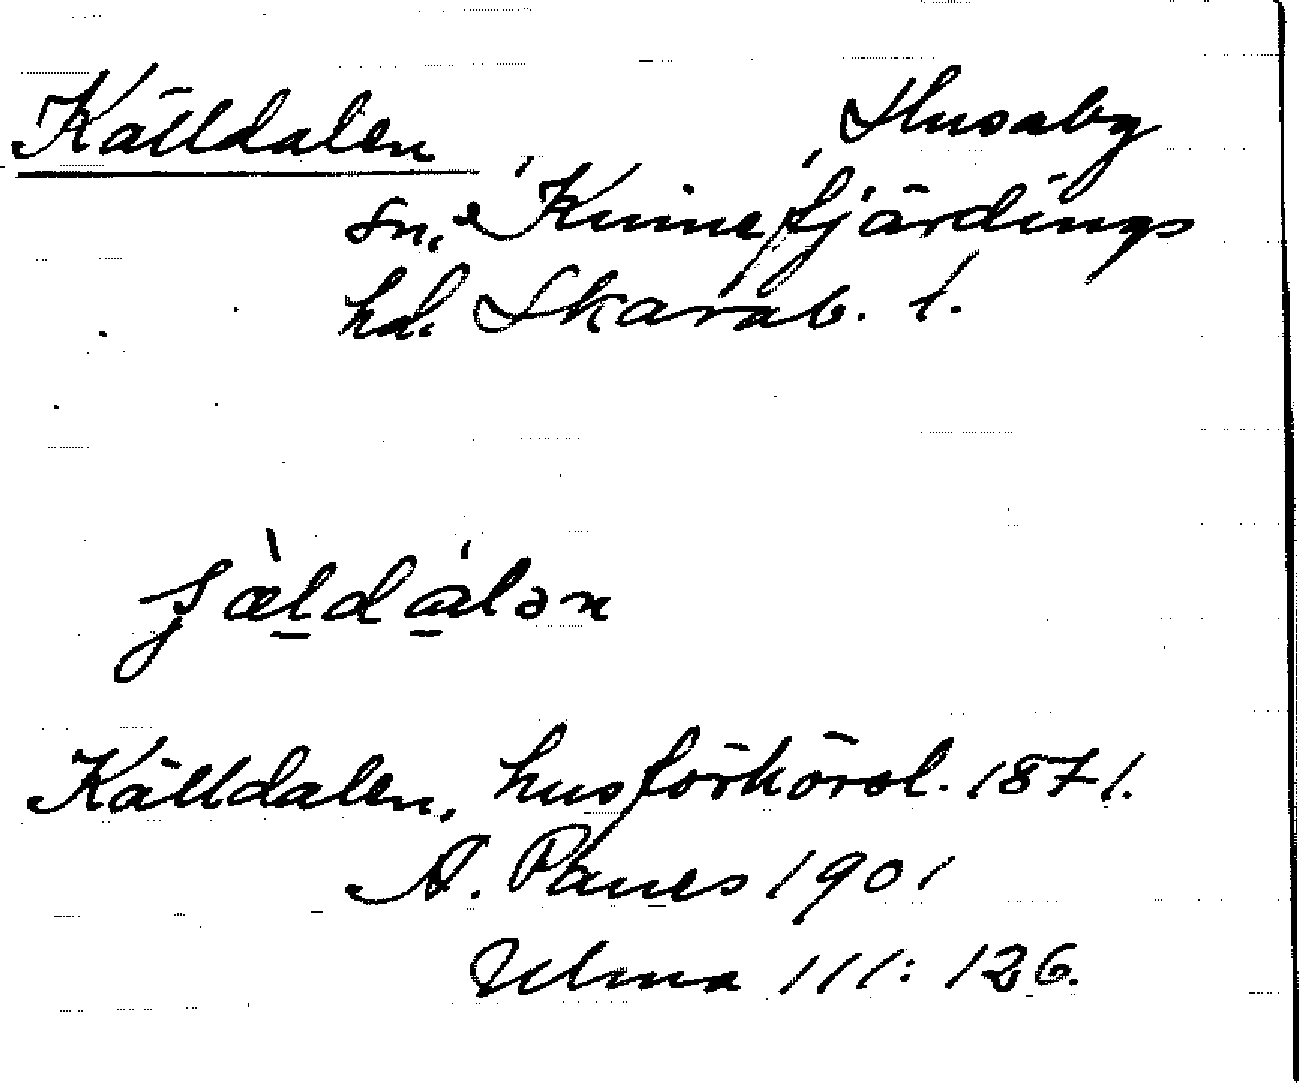 Källdalen Husaby
sn., Kinnefjärdings
hd. Skarab. l.
Källdalen, husförhörsl. 1871.
A. Panes 1901
Ulma 111: 126.